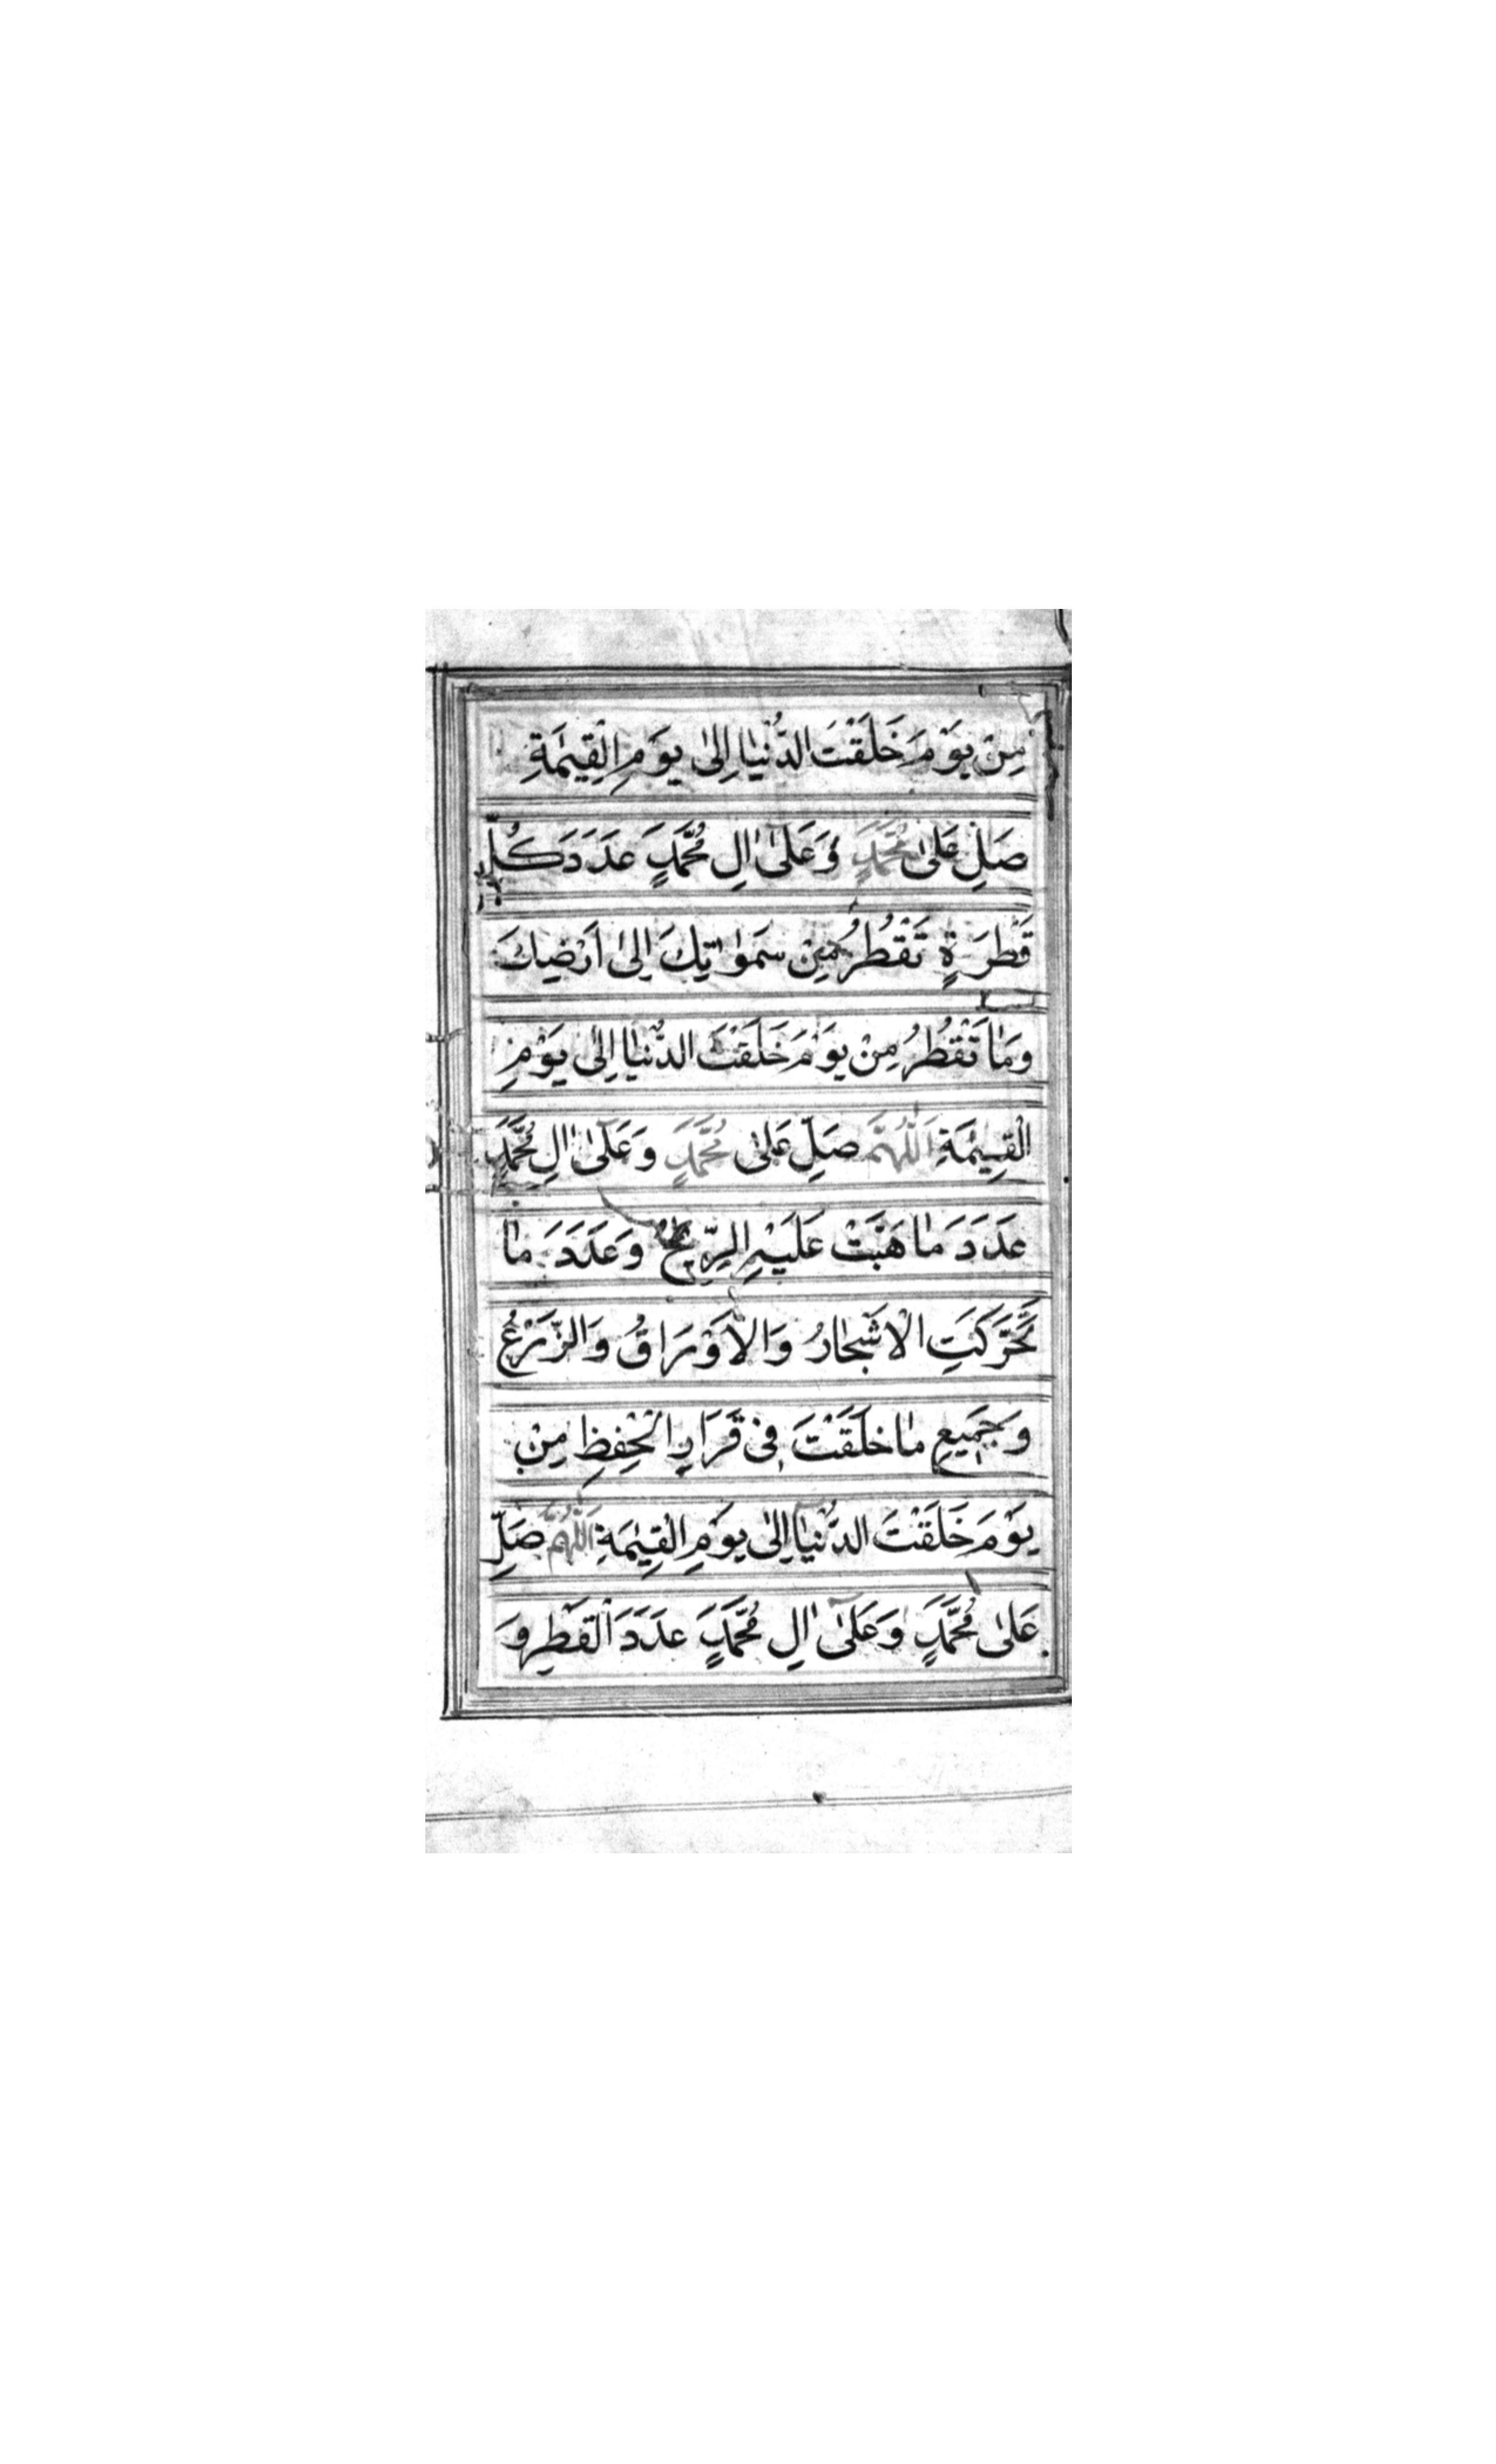 مِنْ يَوْمَ خَلَقْتَ الدُّنْيَا اِلٰى يَوْمِ الْقِيٰمَةِ
صَلِّ عَلٰى مُحَمَّدٍ وَعَلٰى اٰلِ مُحَمَّدٍ عَدَدَ كُلِّ
قَطْرَةٍ تَقْطُرُ مِنْ سَمٰوٰاتِكَ اِلٰى اَرْضِكَ
وَمَا تَقْطُرُ مِنْ يَوْمَ خَلَقْتَ الدُّنْيَا اِلٰى يَوْمِ
الْقِيٰمَةِ اَللّٰهُمَّ صَلِّ عَلٰى مُحَمَّدٍ وَعَلٰى اٰلِ مُحَمَّدٍ
عَدَدَ مَا هَبَّتْ عَلَيْهِ الرِّيْحُ وَعَدَدَ مَا
تَحَرَّكَتِ الْاَشْجَارُ وَالْاَوْرَاقُ وَالزَّرْعُ
وَجَمِيعِ مَا خَلَقْتَ فِى قَرَارِ الْحِفْظِ مِنْ
يَوْمَ خَلَقْتَ الدُّنْيَا اِلٰى يَوْمِ الْقِيٰمَةِ اَللّٰهُمَّ صَلِّ
عَلٰى مُحَمَّدٍ وَعَلٰى اٰلِ مُحَمَّدٍ عَدَدَ الْقَطْرِ وَ